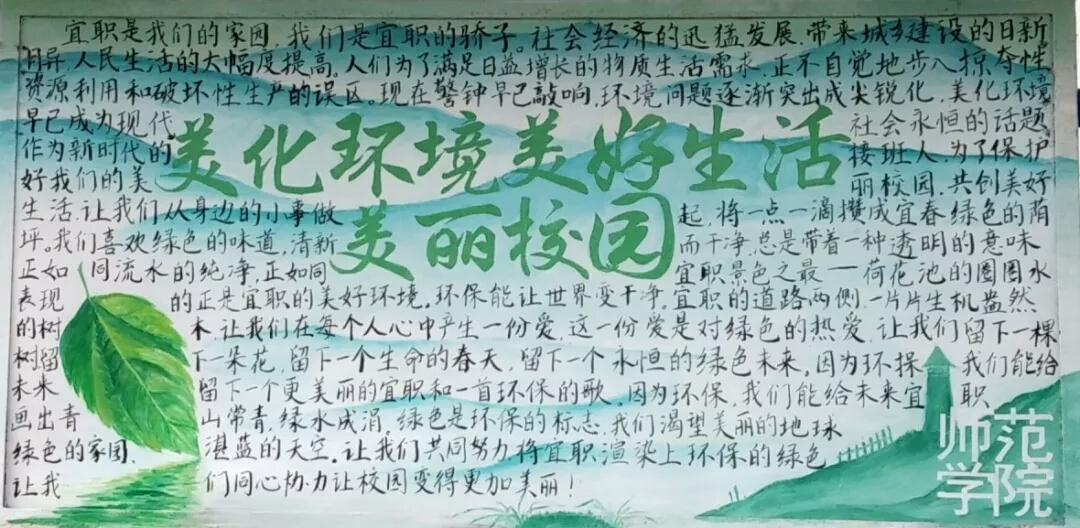 宜职是我们的家园，我们是宜职的骄子。社会经济的迅猛发展，带来城乡建设的日新
月异，人民生活的大幅度提高。人们为了满足日益增长的物质生活需求，正不自觉地步入掠夺性
资源利用和破坏性生产的误区。现在警钟早已敲响，环境问题逐渐突出成尖锐化，美化环境
早已成为现代 社会永恒的话题。
作为新时代的 接班人，为了保护
好我们的美 丽校园，共创美好
美化环境美好生活
生活，让我们从身边的小事做 起，将一点一滴攒成宜春绿色的荫
坪。我们喜欢绿色的味道，清新 而干净，总是带着一种透明的意味
美丽校园
正如 同流水的纯净，正如同 宜职景色之最——荷花池的圈圈水
表现 的正是宜职的美好环境，环保能让世界变干净，宜职的道路两侧，一片片生机盎然
的树 木，让我们在每个人心中产生一份爱，这一份爱是对绿色的热爱，让我们留下一棵
树留 下一朵花，留下一个生命的春天，留下一个永恒的绿色未来，因为环保 我们能给
未来 留下一个更美丽的宜职和一首环保的歌。因为环保，我们能给未来宜 职
画出青 山常青，绿水成涓，绿色是环保的标志，我们渴望美丽的地球
绿色的家园， 湛蓝的天空，让我们共同努力将宜职渲染上环保的绿色
让我 们同心协力让校园变得更加美丽！
师范
学院